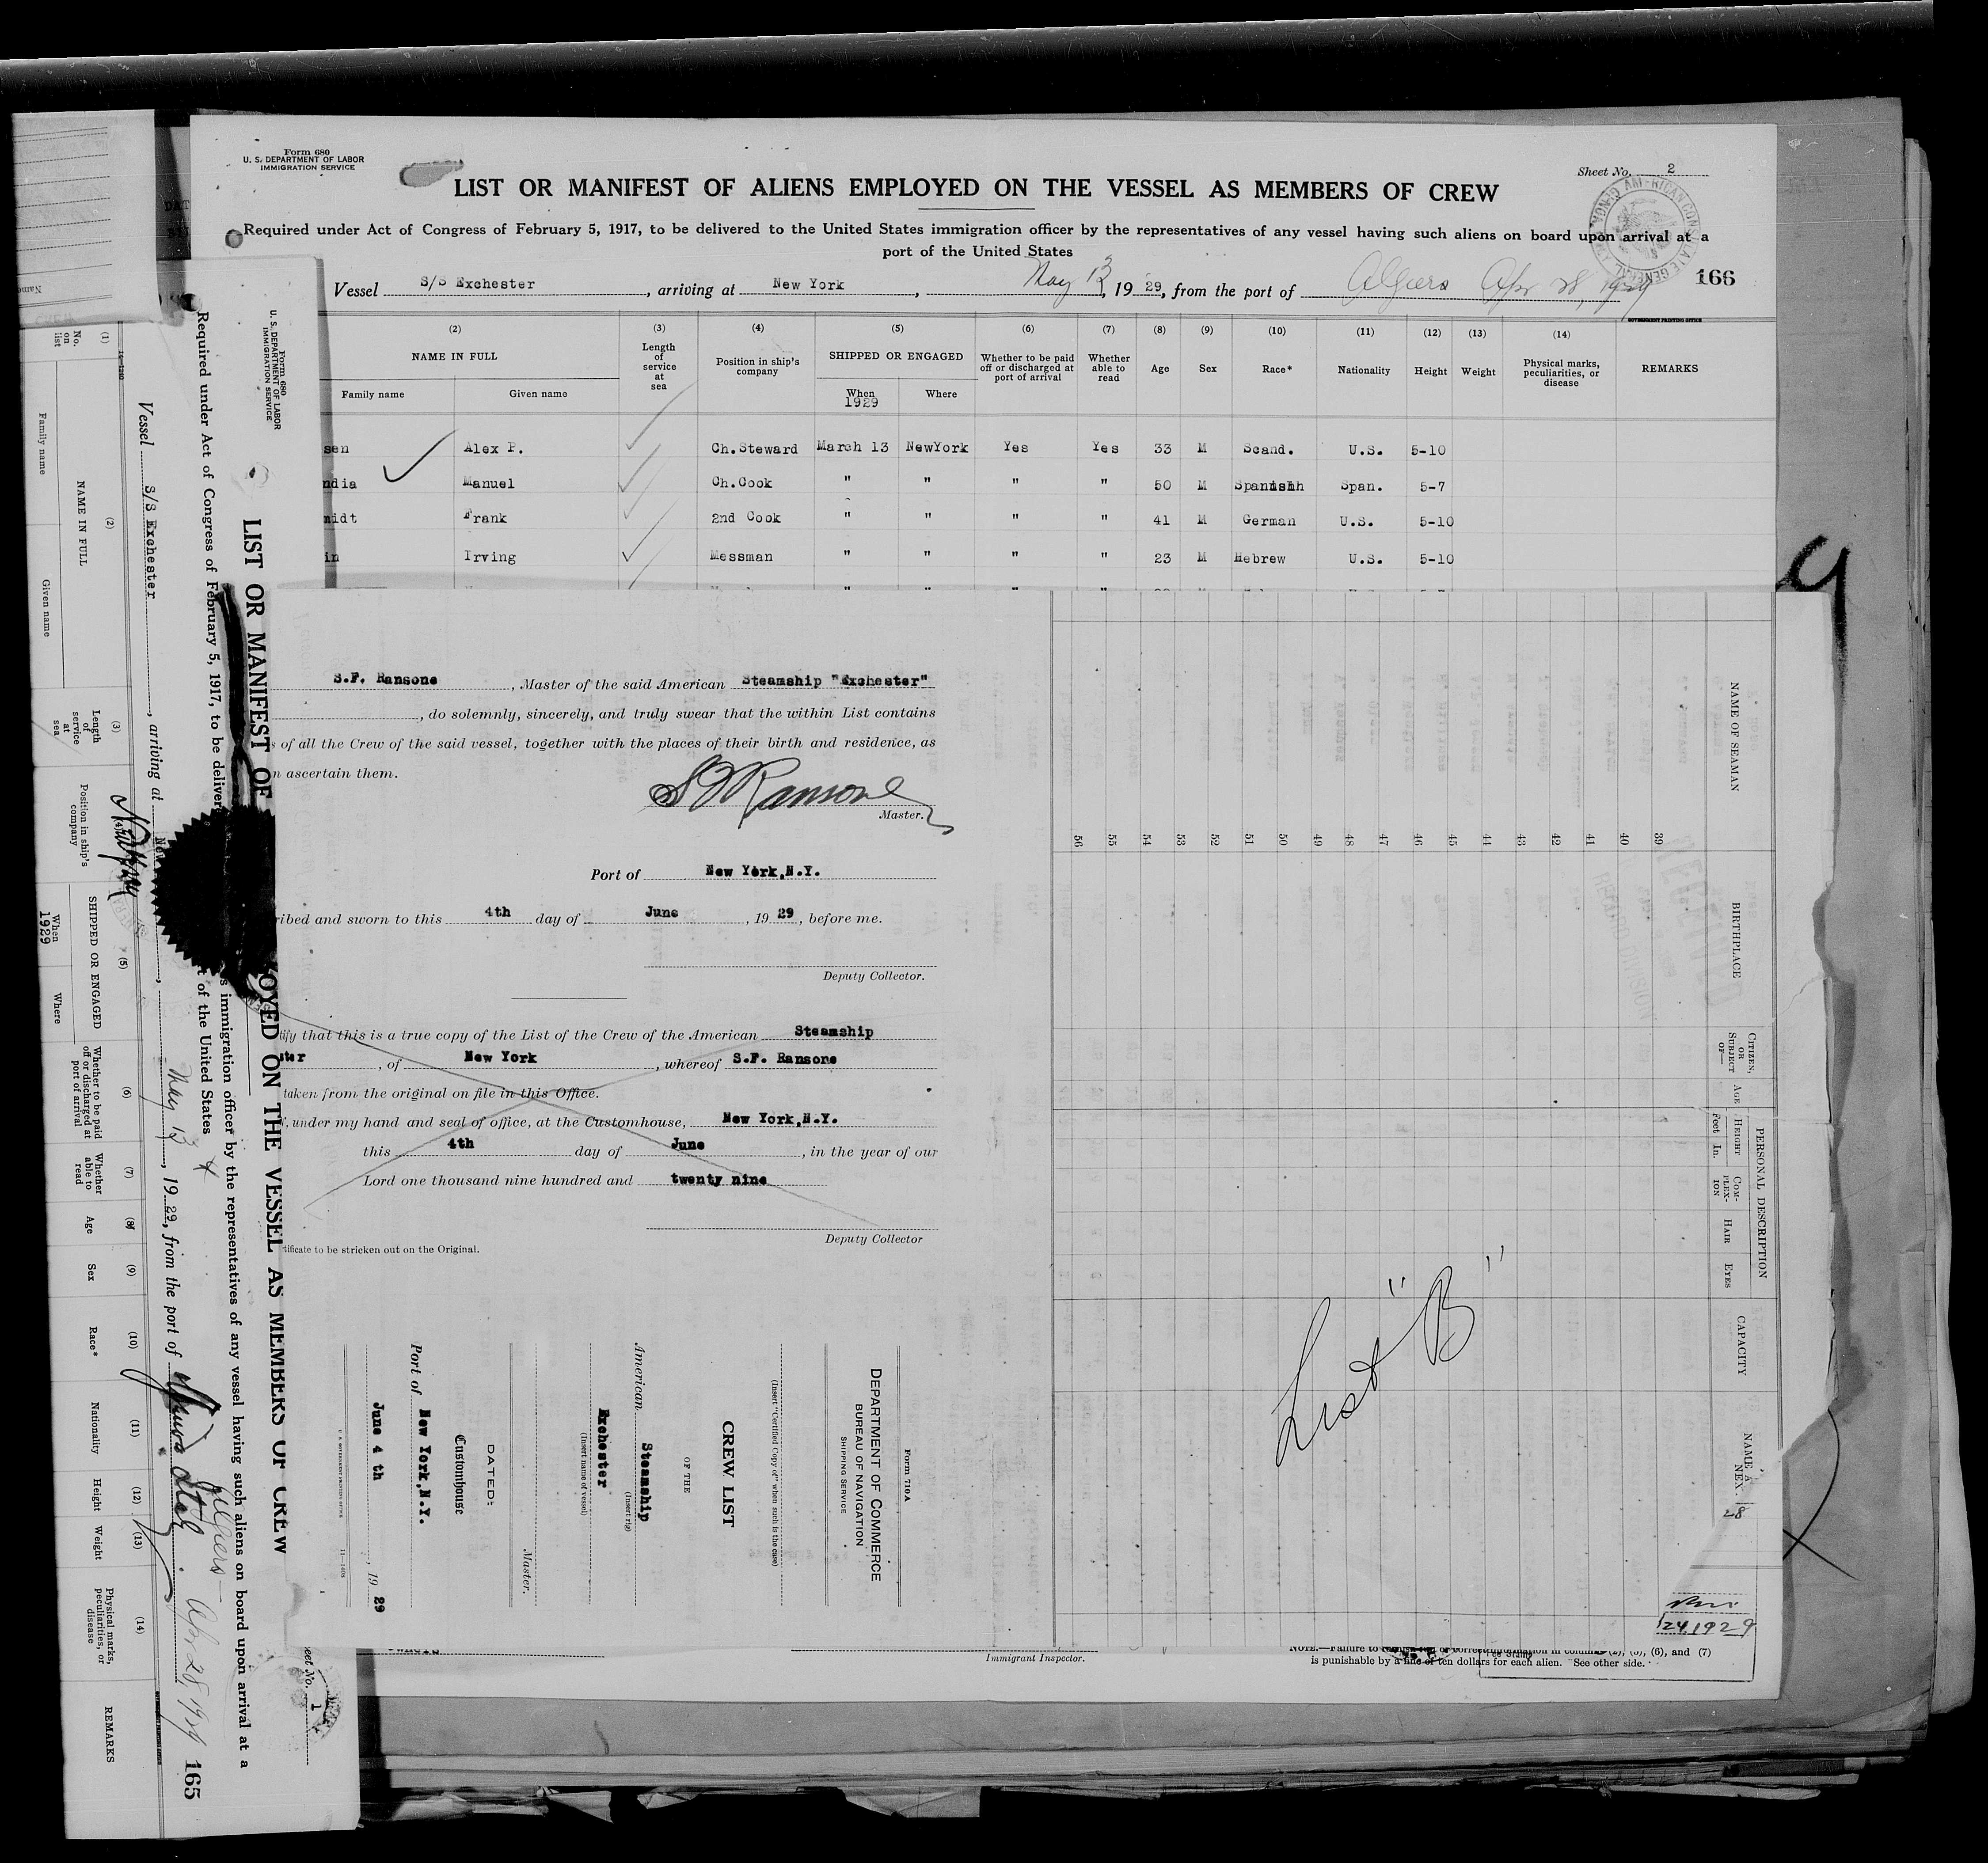 Form 680
U. S. DEPARTMENT OF LABOR
IMMIGRATION SERVICE
Sheet No. 2
LIST OR MANIFEST OF ALIENS EMPLOYED ON THE VESSEL AS MEMBERS OF CREW
Required under Act of Congress of February 5, 1917, to be delivered to the United States immigration officer by the representatives of any vessel having such aliens on board upon arrival at a
port of the United States
166
Vessel S/S Exchester, arriving at New York, May 13, 1929, from the port of Algiers Apr 28, 1929
(2) (3) (4) (5) (6) (7) (8) (9) (10) (11) (12) (13) (14)
NAME IN FULL Length of service at sea Position in ship's company SHIPPED OR ENGAGED Whether to be paid off or discharged at port of arrival Whether able to read Age Sex Race* Nationality Height Weight Physical marks, peculiarities, or disease REMARKS
Family name Given name When 1929 Where
sen Alex P. Ch.Steward March 13 NewYork Yes Yes 33 M Scand. U.S. 5-10
ndia Manuel Ch.Cook " " " " 50 M Spanish Span. 5-7
midt Frank 2nd Cook " " " " 41 M German U.S. 5-10
in Irving Messman " " " " 23 M Hebrew U.S. 5-10
S.F. Ransone, Master of the said American Steamship "Exchester"
, do solemnly, sincerely, and truly swear that the within List contains
s of all the Crew of the said vessel, together with the places of their birth and residence, as
n ascertain them.
S F Ransone
Master.
Port of New York, N.Y.
ribed and sworn to this 4th day of June, 1929, before me.
Deputy Collector.
tify that this is a true copy of the List of the Crew of the American Steamship
ster, of New York, whereof S.F. Ransone
taken from the original on file in this Office.
under my hand and seal of office, at the Customhouse, New York, N.Y.
this 4th day of June, in the year of our
Lord one thousand nine hundred and twenty nine
Deputy Collector
tificate to be stricken out on the Original.
Form 710A
DEPARTMENT OF COMMERCE
BUREAU OF NAVIGATION
SHIPPING SERVICE
(Insert "Certified Copy of" when such is the case)
CREW LIST
OF THE
American Steamship
(Insert rig)
Exchester
(Insert name of vessel)
Master.
DATED:
Customhouse
Port of New York, N.Y.
June 4 th, 1929
NAME OF SEAMAN BIRTHPLACE CITIZEN, OR SUBJECT OF— AGE PERSONAL DESCRIPTION CAPACITY
HEIGHT COMPLEXION HAIR EYES
Feet In.
39
40
41
42
43
44
45
46
47
48
49
50
51
52
53
54
55
56
List "B"
24 1929
Immigrant Inspector.
NOTE.—Failure to
(6), and (7)
is punishable by a fine of ten dollars for each alien. See other side.
Form 680
U. S. DEPARTMENT OF LABOR
IMMIGRATION SERVICE
Sheet No. 1
LIST OR MANIFEST OF
OYED ON THE VESSEL AS MEMBERS OF CREW
Required under Act of Congress of February 5, 1917, to be deliver
s immigration officer by the representatives of any vessel having such aliens on board upon arrival at a
t of the United States
165
Vessel S/S Exchester, arriving at New
May 13, 1929, from the port of
Algiers Apr 28 1929
(1) (2) (3) (4) (5) (6) (7) (8) (9) (10) (11) (12) (13) (14)
No. on list NAME IN FULL Length of service at sea Position in ship's company SHIPPED OR ENGAGED Whether to be paid off or discharged at port of arrival Whether able to read Age Sex Race* Nationality Height Weight Physical marks, peculiarities, or disease REMARKS
Family name Given name When 1929 Where